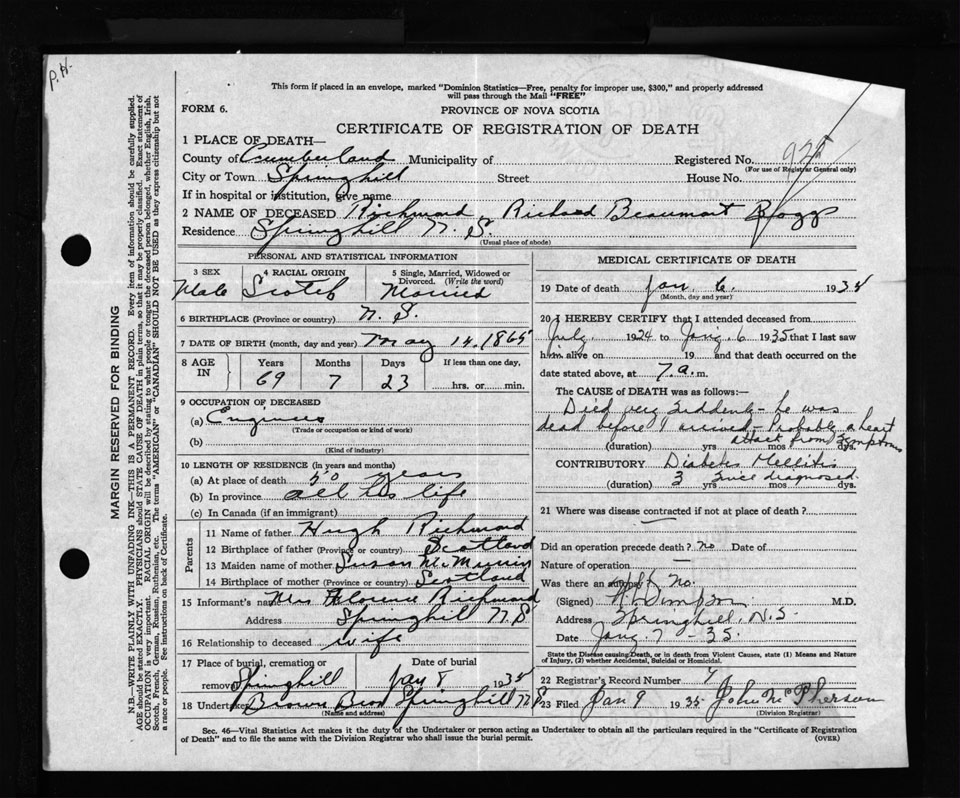 P.H.
This form if placed in an envelope, marked "Dominion Statistics—Free, penalty for improper use, $300," and properly addressed
will pass through the Mail "FREE"
FORM 6.
PROVINCE OF NOVA SCOTIA
CERTIFICATE OF REGISTRATION OF DEATH
1 PLACE OF DEATH—
County of Cumberland Municipality of Registered No. 925
(For use of Registrar General only)
City or Town Springhill Street House No.
If in hospital or institution, give name
2 NAME OF DECEASED Richmond, Richard Beaumont
Residence Springhill N.S.
(Usual place of abode)
PERSONAL AND STATISTICAL INFORMATION
3 SEX 4 RACIAL ORIGIN 5 Single, Married, Widowed or
Divorced. (Write the word)
Male Scotch Married
6 BIRTHPLACE (Province or country) N.S.
7 DATE OF BIRTH (month, day and year) May 14, 1865
8 AGE IN Years Months Days If less than one day,
69 7 23 hrs. or min.
9 OCCUPATION OF DECEASED
(a) Engineer
(Trade or occupation or kind of work)
(b)
(Kind of industry)
10 LENGTH OF RESIDENCE (in years and months)
(a) At place of death 50 years
(b) In province all his life
(c) In Canada (if an immigrant)
Parents
11 Name of father Hugh Richmond
12 Birthplace of father (Province or country) Scotland
13 Maiden name of mother Susan
14 Birthplace of mother (Province or country) Scotland
15 Informant's name Mrs Florence Richmond
Address Springhill N.S.
16 Relationship to deceased wife
17 Place of burial, cremation or Date of burial
removal Springhill Jany 8 1935
18 Undertaker Brown Bros Springhill N.S.
(Name and address)
MEDICAL CERTIFICATE OF DEATH
19 Date of death Jan 6. 1935
(Month, day and year)
20 I HEREBY CERTIFY that I attended deceased from
July 1924 to Jany. 6 1935 that I last saw
him alive on 19 and that death occurred on the
date stated above, at 7 a.m.
The CAUSE of DEATH was as follows:—
Died very suddenly – he was
dead before I arrived – Probably a heart
attack from symptoms
(duration) yrs mos dys.
CONTRIBUTORY Diabetes Mellitis
(duration) 3 yrs since diagnosed dys.
21 Where was disease contracted if not at place of death?
Did an operation precede death? no Date of
Nature of operation —
Was there an autopsy? No.
(Signed) Simpson M.D.
Address Springhill, N.S.
Date Jany 7 - 35.
State the Disease causing Death, or in death from Violent Causes, state (1) Means and Nature
of Injury, (2) whether Accidental, Suicidal or Homicidal.
22 Registrar's Record Number 4
23 Filed Jan 9 1935 John McPherson
(Division Registrar)
Sec. 46—Vital Statistics Act makes it the duty of the Undertaker or person acting as Undertaker to obtain all the particulars required in the "Certificate of Registration
of Death" and to file the same with the Division Registrar who shall issue the burial permit. (OVER)
MARGIN RESERVED FOR BINDING
N.B.—WRITE PLAINLY WITH UNFADING INK—THIS IS A PERMANENT RECORD. Every item of information should be carefully supplied.
AGE should be stated EXACTLY. PHYSICIANS should STATE CAUSE OF DEATH in plain terms, so that it may be properly classified. Exact statement of
OCCUPATION is very important. RACIAL ORIGIN will be described by stating to what people or tongue the deceased person belonged, whether English, Irish,
Scotch, French, German, Russian, Ruthenian, etc. The terms "AMERICAN" or "CANADIAN" SHOULD NOT BE USED as they express citizenship but not
a race or people. See instructions on back of Certificate.